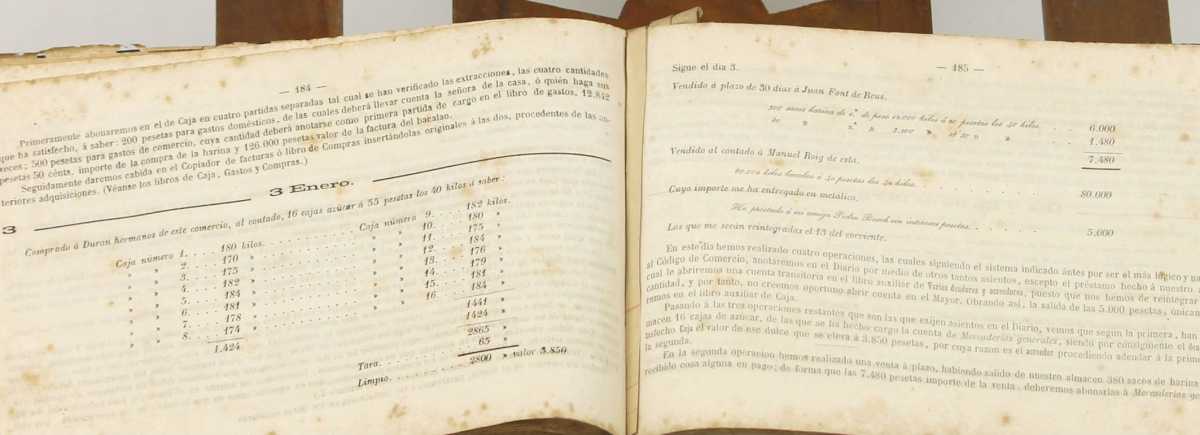 — 184 —
Primeramente abonaremos en el de Caja en cuatro partidas separadas tal cual se han verificado las extracciones, las cuatro cantidades
que ha satisfecho, á saber: 200 pesetas para gastos domésticos, de las cuales deberá llevar cuenta la señora de la casa, ó quién haga sus
veces; 500 pesetas para gastos de comercio, cuya cantidad deberá anotarse como primera partida de cargo en el libro de gastos, 12.842
pesetas 50 cénts. importe de la compra de la harina y 126.000 pesetas valor de la factura del bacalao.
Seguidamente daremos cabida en el Copiador de facturas ó libro de Compras insertándolas originales á las dos, procedentes de las an-
teriores adquisiciones. (Véanse los libros de Caja, Gastos y Compras.)
3 Enero.
3
Comprado á Duran hermanos de este comercio, al contado, 16 cajas azúcar á 55 pesetas los 40 kilos á saber:
Caja número 1. 180 kilos. Caja número 9. 182 kilos.
» » 2. 170 » » » 10. 180 »
» » 3. 175 » » » 11. 175 »
» » 4. 182 » » » 12. 184 »
» » 5. 184 » » » 13. 176 »
» » 6. 181 » » » 14. 179 »
» » 7. 178 » » » 15. 181 »
» » 8. 174 » » » 16. 184 »
1.424 1441 »
1424 »
2865 »
Tara. 65 »
Limpio. 2800 » valor 3.850
Sigue el dia 3. — 185 —
Vendido á plazo de 30 dias á Juan Font de Reus.
300 sacos harina de 1.ª de peso 12.000 kilos á 20 pesetas los 40 kilos. 6.000
80 » » 2.ª » » » » 1.480
7.480
Vendido al contado á Manuel Roig de esta.
kilos bacalao á 50 pesetas los kilos. 80.000
Cuyo importe me ha entregado en metálico.
He prestado á mi amigo Pedro Bosch sin intereses pesetas. 5.000
Las que me serán reintegradas el 13 del corriente.
En este dia hemos realizado cuatro operaciones, las cuales siguiendo el sistema indicado ántes por ser el más lógico y
al Código de Comercio, anotaremos en el Diario por medio de otros tantos asientos, excepto el préstamo hecho á nuestro
cual le abriremos una cuenta transitoria en el libro auxiliar de Varios deudores y acreedores, puesto que nos hemos de reintegrar
cantidad, y por tanto, no creemos oportuno abrir cuenta en el Mayor. Obrando así, la salida de las 5.000 pesetas,
remos en el libro auxiliar de Caja.
Pasando á las tres operaciones restantes que son las que exijen asientos en el Diario, vemos que segun la primera, han
macen 16 cajas de azúcar, de las que se ha hecho cargo la cuenta de Mercaderías generales, siendo por consiguiente el
tisfecho Caja el valor de ese dulce que se eleva á 3.850 pesetas, por cuya razon es el acreedor procediendo adeudar á la
la segunda.
En la segunda operacion hemos realizado una venta á plazo, habiendo salido de nuestro almacen 380 sacos de harina
recibido cosa alguna en pago; de forma que las 7.480 pesetas importe de la venta, deberemos abonarlas á Mercaderías